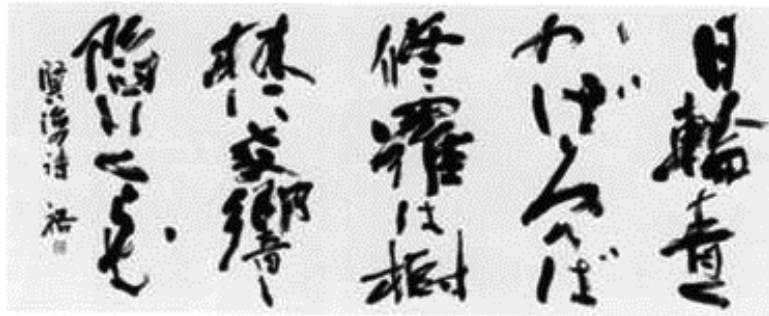 日輪青く
かげろへば
修羅は樹
林に交響し
陥りくらむ
賢治の詩